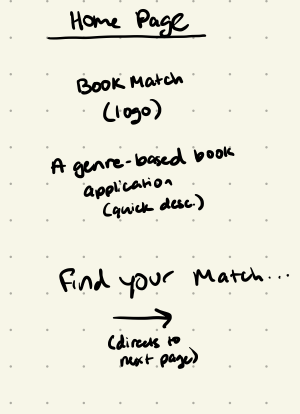 Home Page
Book Match
(logo)
A genre-based book
application
(quick desc.)
Find your Match...
(directs to
next page)